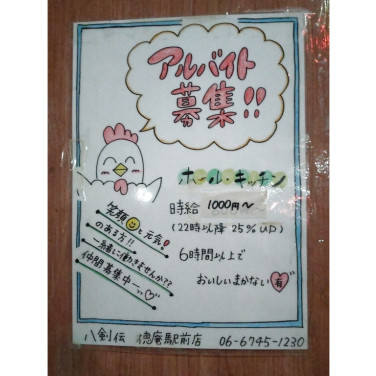 アルバイト
募集!!
ホール・キッチン
時給 1000円～
(22時以降 25% UP)
6時間以上で
おいしいまかない有
笑顔と元気!
のある方!!
一緒に働きませんか??
仲間募集中～
八剣伝 徳庵駅前店 06-6745-1230